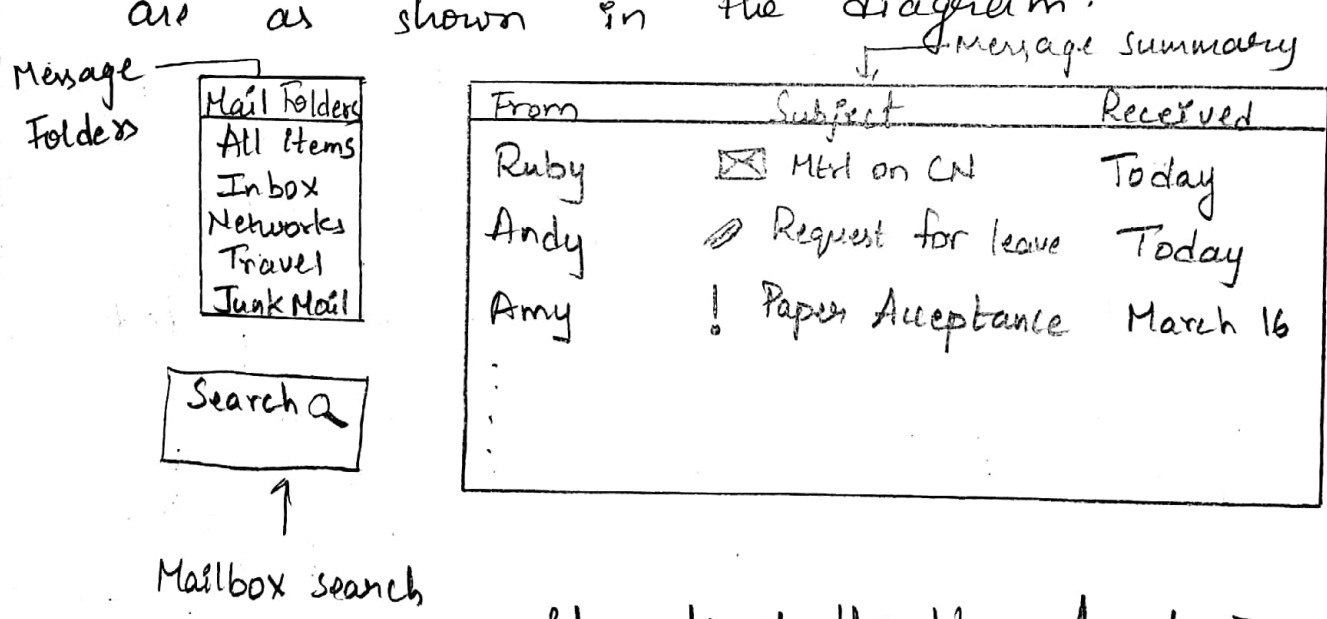 are as shown in the diagram.
Message summary
Message
Folders
Mail Folders
All Items
Inbox
Networks
Travel
Junk Mail
From Subject Received
Ruby Mtrl on CN Today
Andy Request for leave Today
Amy ! Paper Acceptance March 16
Search
Mailbox search